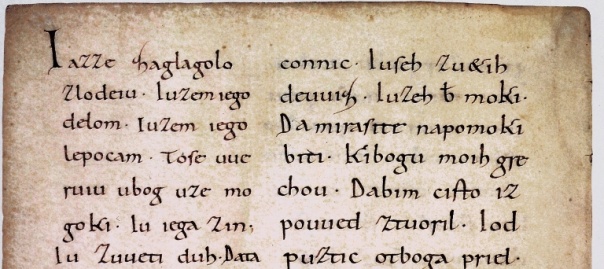 Iazze zaglagolo
zlodeiu. Iuzem iego
delom. Iuzem iego
lepocam. Tose uue
ruiu ubog uze mo
goki. Iu iega zin;
Iu zuueti duh. Data
connic. Iuseh zu&ih
deuuiz. Iuzeh b̄ moki.
Da mirastete napomoki
biti. Kibogu moih gre
chou. Dabim cisto iz
pouued ztuoril. Iod
puztic otboga priel.